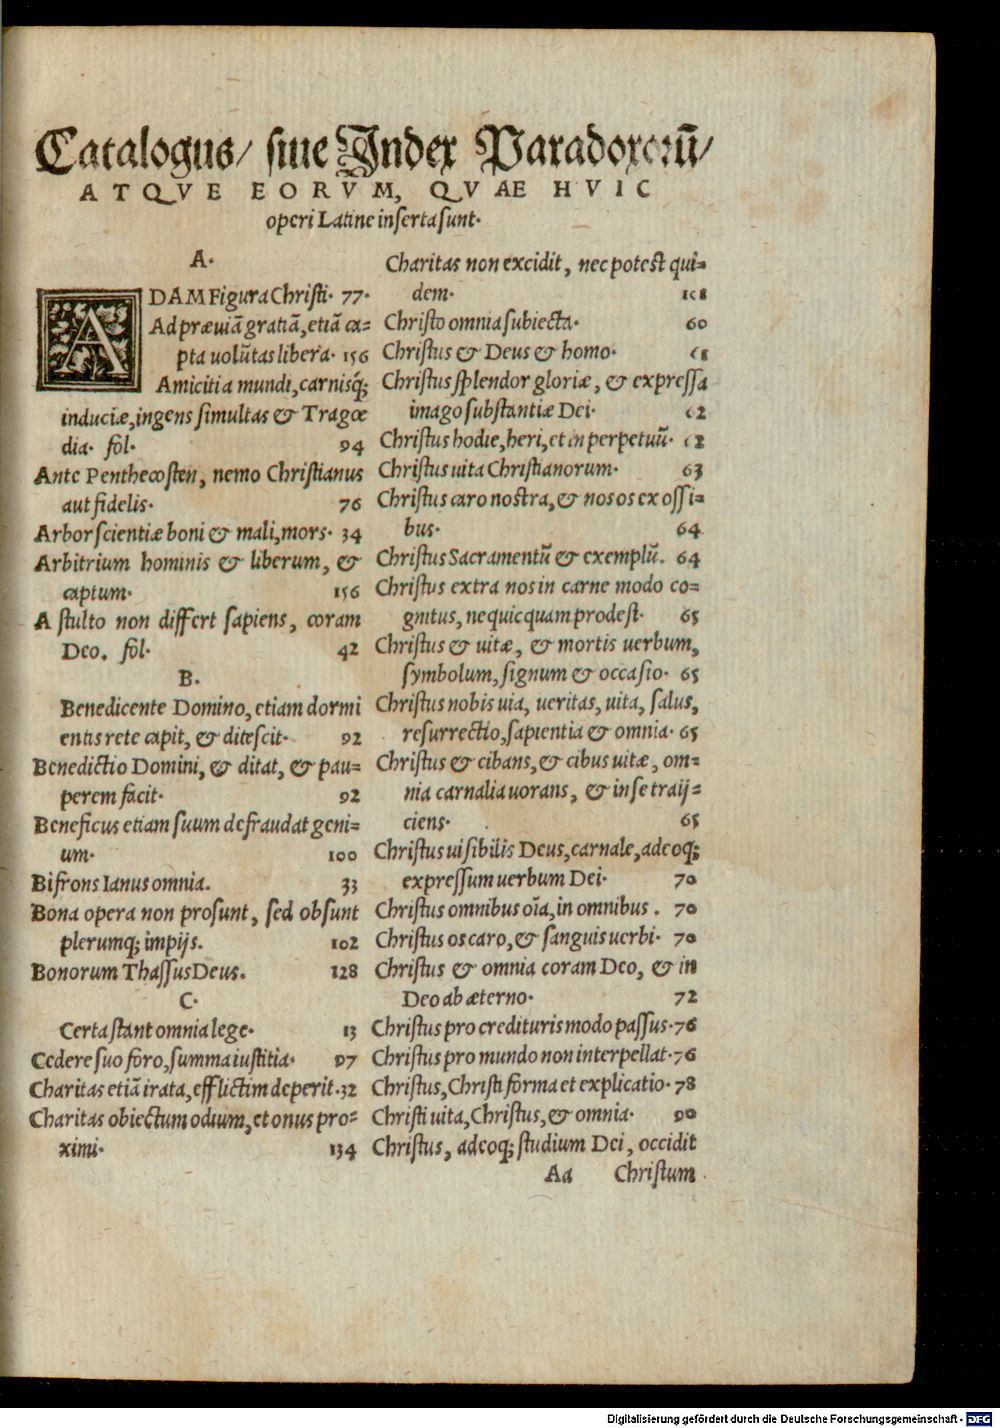 Catalogus/ siue Index Paradoxorū/
ATQVE EORVM, QVAE HVIC
operi Latine inserta sunt.
A.
ADAM Figura Christi. 77.
Ad præuiā gratiā, etiā ca=
pta uolūtas libera. 156
Amicitia mundi, carnisq;
induciæ, ingens simultas & Tragœ
dia. fol. 94
Ante Penthecosten, nemo Christianus
aut fidelis. 76
Arbor scientiæ boni & mali, mors. 34
Arbitrium hominis & liberum, &
captum. 156
A stulto non differt sapiens, coram
Deo. fol. 42
B.
Benedicente Domino, etiam dormi
entis rete capit, & ditescit. 92
Benedictio Domini, & ditat, & pau=
perem facit. 92
Beneficus etiam suum defraudat geni=
um. 100
Bifrons Ianus omnia. 33
Bona opera non prosunt, sed obsunt
plerumq; impijs. 102
Bonorum Thassus Deus. 128
C.
Certa stant omnia lege. 13
Cedere suo foro, summa iustitia. 97
Charitas etiā irata, efflictim deperit. 32
Charitas obiectum odium, et onus pro=
ximi. 134
Charitas non excidit, nec potest qui=
dem.
Christo omnia subiecta. 60
Christus & Deus & homo.
Christus splendor gloriæ, & expressa
imago substantiæ Dei. 62
Christus hodie, heri, et in perpetuū. 62
Christus uita Christianorum. 63
Christus caro nostra, & nos os ex ossi=
bus. 64
Christus Sacramentū & exemplū. 64
Christus extra nos in carne modo co=
gnitus, nequicquam prodest. 65
Christus & uitæ, & mortis uerbum,
symbolum, signum & occasio. 65
Christus nobis uia, ueritas, uita, salus,
resurrectio, sapientia & omnia. 65
Christus & cibans, & cibus uitæ, om=
nia carnalia uorans, & in se traij=
ciens. 65
Christus uisibilis Deus, carnale, adeoq;
expressum uerbum Dei. 70
Christus omnibus oīa, in omnibus. 70
Christus os caro, & sanguis uerbi. 70
Christus & omnia coram Deo, & in
Deo ab æterno. 72
Christus pro credituris modo passus. 76
Christus pro mundo non interpellat. 76
Christus, Christi forma et explicatio. 78
Christi uita, Christus, & omnia. 90
Christus, adeoq; studium Dei, occidit
Aa Christum
Digitalisierung gefördert durch die Deutsche Forschungsgemeinschaft - DFG